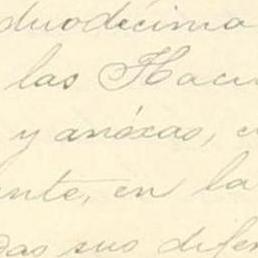 duodécima
las Haci
y anéxas, e
ente, en la
das sus difer